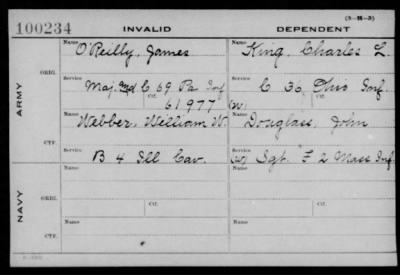 (3-M-3)
100234 INVALID DEPENDENT
Name O'Reilly, James Name King, Charles L.
ARMY
ORIG.
Service Maj. C 69 Pa Inf Service C 36, Ohio Inf.
Ctf. 61977 Ctf. (W)
Name Webber, William W. Name Douglass, John
CTF.
Service B 4 Ill Cav. Service (W) Sgt. F 2 Mass Inf
NAVY
ORIG.
Name Ctf. Name Ctf.
Name Name
CTF.